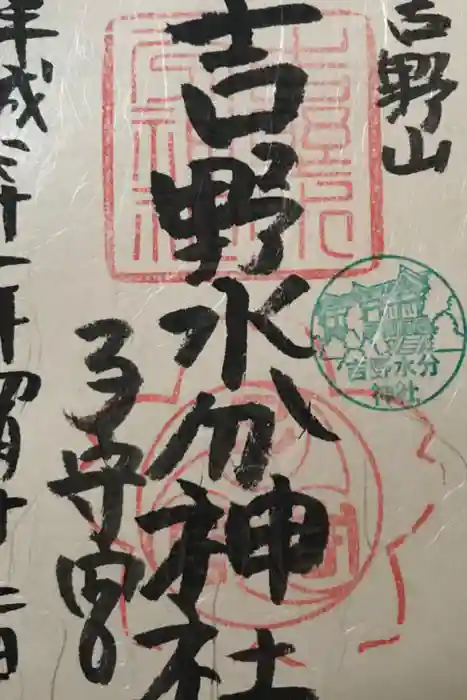 吉野山
吉野水分神社
子守宮
平成二十一年四月十二日
吉野水分
神社